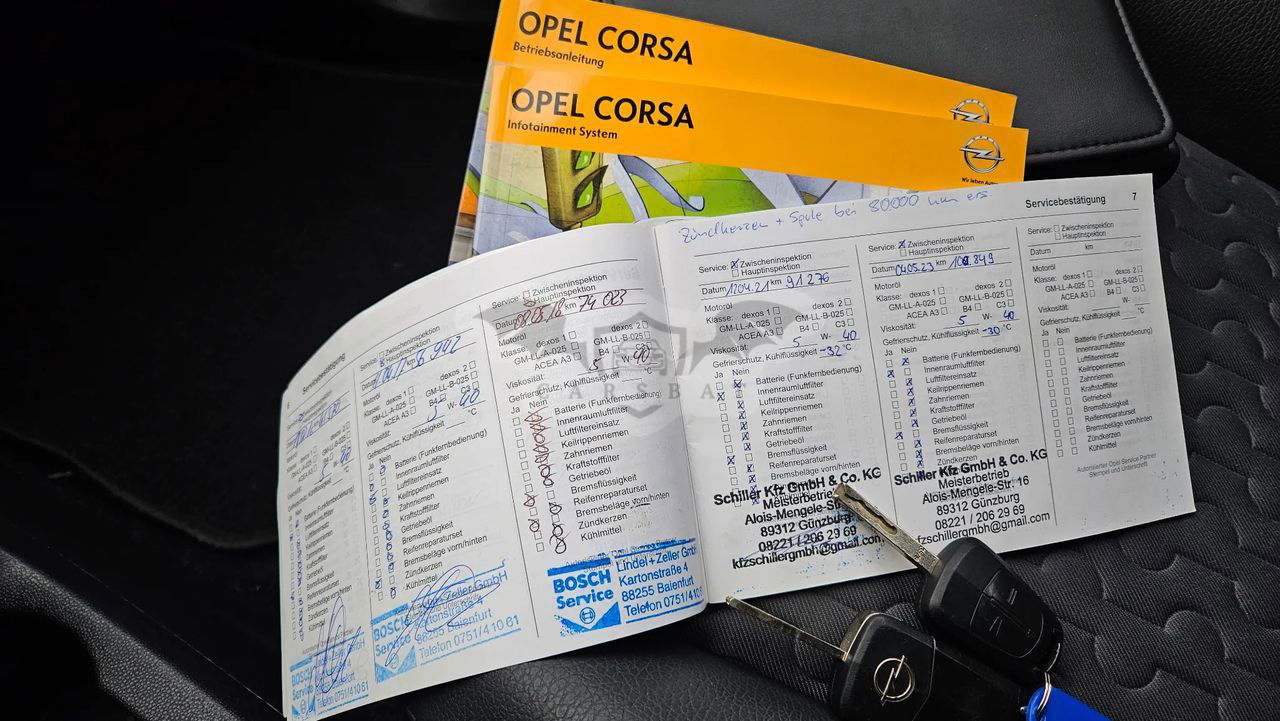 OPEL CORSA
Betriebsanleitung
OPEL CORSA
Infotainment System
Wir leben Autos
CARSBAT
Servicebestätigung
Datum
Motoröl
Klasse: dexos 1 dexos 2
GM-LL-A-025 GM-LL-B-025
ACEA A3 B4 C3
Viskosität: W-
Ja Nein
BOSCH
Service
Telefon 0751/41061
Service: Zwischeninspektion
Hauptinspektion
Datum
Motoröl
Klasse: dexos 1 dexos 2
GM-LL-A-025 GM-LL-B-025
ACEA A3 B4 C3
Viskosität: 5 W- 40
Gefrierschutz, Kühlflüssigkeit °C
Ja Nein
Batterie (Funkfernbedienung)
Innenraumluftfilter
Luftfiltereinsatz
Keilrippenriemen
Zahnriemen
Kraftstofffilter
Getriebeöl
Bremsflüssigkeit
Reifenreparaturset
Bremsbeläge vorn/hinten
Zündkerzen
Kühlmittel
BOSCH
Service
Zeller GmbH
Kartonstraße 4
88255 Baienfurt
Telefon 0751/4 10 61
Service: Zwischeninspektion
Hauptinspektion
Datum 08.05.18 km 74 023
Motoröl
Klasse: dexos 1 dexos 2
GM-LL-A-025 GM-LL-B-025
ACEA A3 B4 C3
Viskosität: 5 W- 40
Gefrierschutz, Kühlflüssigkeit °C
Ja Nein
Batterie (Funkfernbedienung)
Innenraumluftfilter
Luftfiltereinsatz
Keilrippenriemen
Zahnriemen
Kraftstofffilter
Getriebeöl
Bremsflüssigkeit
Reifenreparaturset
Bremsbeläge vorn/hinten
Zündkerzen
Kühlmittel
BOSCH
Service
Lindel+Zeller GmbH
Kartonstraße 4
88255 Baienfurt
Telefon 0751/41
Zündkerzen + Spule bei 80.000 km ers
Servicebestätigung 7
Service: Zwischeninspektion
Hauptinspektion
Datum 12.04.21 km 91 276
Motoröl
Klasse: dexos 1 dexos 2
GM-LL-A-025 GM-LL-B-025
ACEA A3 B4 C3
Viskosität: 5 W- 40
Gefrierschutz, Kühlflüssigkeit -32 °C
Ja Nein
Batterie (Funkfernbedienung)
Innenraumluftfilter
Luftfiltereinsatz
Keilrippenriemen
Zahnriemen
Kraftstofffilter
Getriebeöl
Bremsflüssigkeit
Reifenreparaturset
Bremsbeläge vorn/hinten
Schiller Kfz GmbH & Co. KG
Meisterbetrieb
Alois-Mengele-Str.
89312 Günzburg
08221 / 206 29 69
kfzschillergmbh@gmail.com
Service: Zwischeninspektion
Hauptinspektion
Datum 04.05.23 km
Motoröl
Klasse: dexos 1 dexos 2
GM-LL-A-025 GM-LL-B-025
ACEA A3 B4 C3
Viskosität: 5 W- 40
Gefrierschutz, Kühlflüssigkeit -30 °C
Ja Nein
Batterie (Funkfernbedienung)
Innenraumluftfilter
Luftfiltereinsatz
Keilrippenriemen
Zahnriemen
Kraftstofffilter
Getriebeöl
Bremsflüssigkeit
Reifenreparaturset
Bremsbeläge vorn/hinten
Zündkerzen
Schiller Kfz GmbH & Co. KG
Meisterbetrieb
Alois-Mengele-Str. 16
89312 Günzburg
08221 / 206 29 69
kfzschillergmbh@gmail.com
Service: Zwischeninspektion
Hauptinspektion
Datum km
Motoröl
Klasse: dexos 1 dexos 2
GM-LL-A-025 GM-LL-B-025
ACEA A3 B4 C3
Viskosität: W-
Gefrierschutz, Kühlflüssigkeit °C
Ja Nein
Batterie (Funkfernbedienung)
Innenraumluftfilter
Luftfiltereinsatz
Keilrippenriemen
Zahnriemen
Kraftstofffilter
Getriebeöl
Bremsflüssigkeit
Reifenreparaturset
Bremsbeläge vorn/hinten
Zündkerzen
Kühlmittel
Autorisierter Opel Service Partner
Stempel und Unterschrift